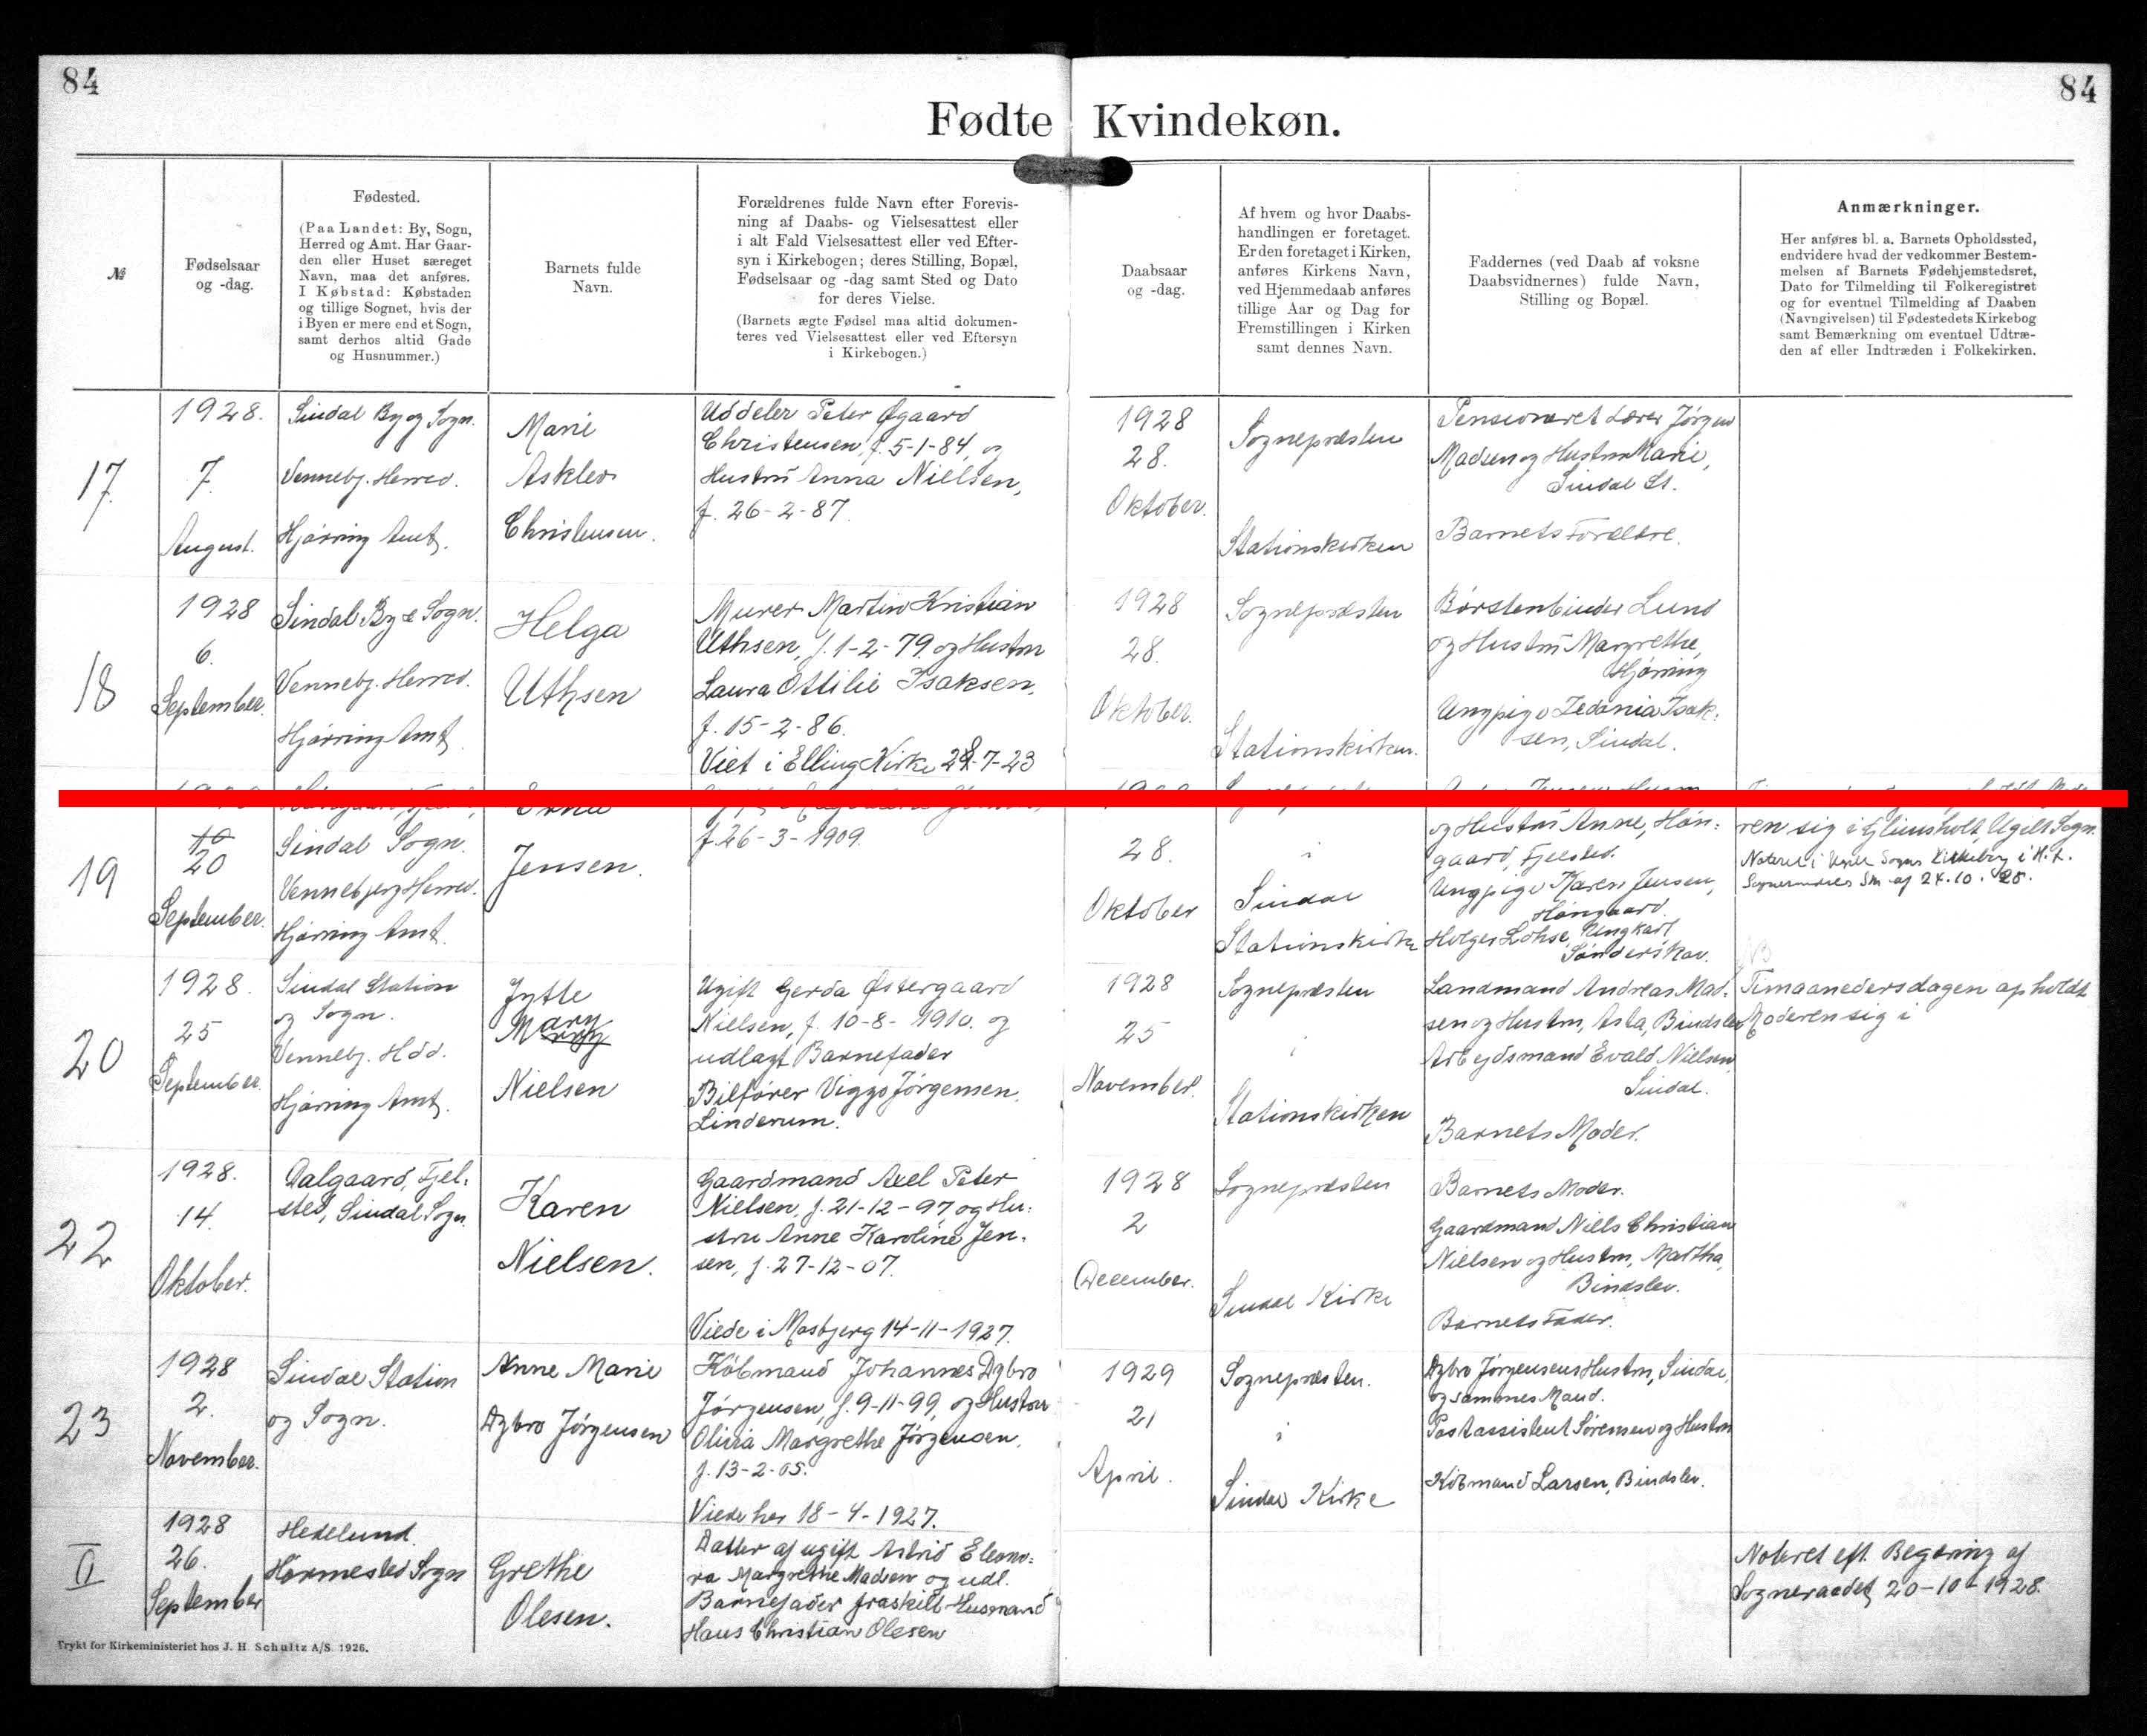 84
84
Fødte Kvindekøn.
№
Fødselsaar
og -dag.
Fødested.
(Paa Landet: By, Sogn,
Herred og Amt. Har Gaar-
den eller Huset særeget
Navn, maa det anføres.
I Købstad: Købstaden
og tillige Sognet, hvis der
i Byen er mere end et Sogn,
samt derhos altid Gade
og Husnummer.)
Barnets fulde
Navn.
Forældrenes fulde Navn efter Forevis-
ning af Daabs- og Vielsesattest eller
i alt Fald Vielsesattest eller ved Efter-
syn i Kirkebogen; deres Stilling, Bopæl,
Fødselsaar og -dag samt Sted og Dato
for deres Vielse.
(Barnets ægte Fødsel maa altid dokumen-
teres ved Vielsesattest eller ved Eftersyn
i Kirkebogen.)
Daabsaar
og -dag.
Af hvem og hvor Daabs-
handlingen er foretaget.
Er den foretaget i Kirken,
anføres Kirkens Navn,
ved Hjemmedaab anføres
tillige Aar og Dag for
Fremstillingen i Kirken
samt dennes Navn.
Faddernes (ved Daab af voksne
Daabsvidnernes) fulde Navn,
Stilling og Bopæl.
Anmærkninger.
Her anføres bl. a. Barnets Opholdssted,
endvidere hvad der vedkommer Bestem-
melsen af Barnets Fødehjemstedsret,
Dato for Tilmelding til Folkeregistret
og for eventuel Tilmelding af Daaben
(Navngivelsen) til Fødestedets Kirkebog
samt Bemærkning om eventuel Udtræ-
den af eller Indtræden i Folkekirken.
17
1928.
7.
August.
Sindal By og Sogn.
Vennebj. Herred.
Hjørring Amt.
Marie
Asklev
Christensen.
Uddeler Peter Øgaard
Christensen, f. 5-1-84, og
Hustru Anna Nielsen,
f. 26-2-87.
1928
28.
Oktober.
Sognepræsten
Stationskirken
Pensioneret Lærer Jørgen
Madsen og Hustru Marie,
Sindal St.
Barnets Forældre.
18
1928
6.
September.
Sindal By & Sogn.
Vennebj. Herred.
Hjørring Amt.
Helga
Uthsen
Murer Martin Kristian
Uthsen, f. 1-2-79. og Hustru
Laura Ottilie Isaksen,
f. 15-2-86.
Viet i Elling Kirke 28-7-23
1928
28.
Oktober.
Sognepræsten
Stationskirken.
Børstenbinder Lund
og Hustru Margrethe,
Hjørring
Ungpige Zedonia Isak-
sen, Sindal.
19
10
20
September.
Sindal Sogn.
Vennebjerg Herred.
Hjørring Amt.
Jensen.
f. 26-3-1909.
28.
Oktober
i
Sindal
Stationskirke
og Hustru Anne, Høn-
gaard, Fjelsted.
Ungpige Karen Jensen,
Høngaard.
Holger Lohse, Ungkarl
Sønderskov.
ren sig i Ejlimsholt, Ugilt Sogn.
Noteret i Ugilt Sogns Kirkebog i H. t.
Sogneraadets Skr. af 24.10.28.
20
1928.
25
September.
Sindal Station
og Sogn.
Vennebj. Hdd.
Hjørring Amt.
Jytte
Mary
Nielsen
Ugift Gerda Østergaard
Nielsen, f. 10-8-1910. og
udlagt Barnefader
Bilfører Viggo Jørgensen,
Linderum.
1928
25
November.
Sognepræsten
i
Stationskirken
Landmand Andreas Mad-
sen og Hustru, Asta, Bindslev
Arbejdsmand Evald Nielsen,
Sindal.
Barnets Moder.
Timaanedersdagen opholdt
Moderen sig i
22
1928.
14.
Oktober.
Aalgaard, Fjel-
sted, Sindal Sogn.
Karen
Nielsen.
Gaardmand Axel Peter
Nielsen, f. 21-12-97, og Hu-
stru Anne Karoline Jen-
sen, f. 27-12-07.
Viede i Mosbjerg 14-11-1927.
1928
2
December.
Sognepræsten
Sindal Kirke
Barnets Moder.
Gaardmand Niels Christian
Nielsen og Hustru, Martha,
Bindslev.
Barnets Fader.
23
1928
2.
November.
Sindal Station
og Sogn.
Anne Marie
Dybro Jørgensen
Købmand Johannes Dybro
Jørgensen, f. 9-11-99, og Hustru
Olivia Margrethe Jørgensen,
f. 13-2-05.
Viede her 18-4-1927.
1929
21
April.
Sognepræsten.
i
Sindal Kirke
Dybro Jørgensens Hustru, Sindal,
og sammes Mand.
Postassistent Sørensen og Hustru
Købmand Larsen, Bindslev.
II
1928
26.
September
Hedelund.
Hørmested Sogn
Grethe
Olesen.
Datter af ugift Astrid Eleono-
ra Margrethe Madsen og udl.
Barnefader fraskilt Husmand
Hans Christian Olesen
Noteret eft. Begæring af
Sogneraadet 20-10-1928.
Trykt for Kirkeministeriet hos J. H. Schultz A/S 1926.